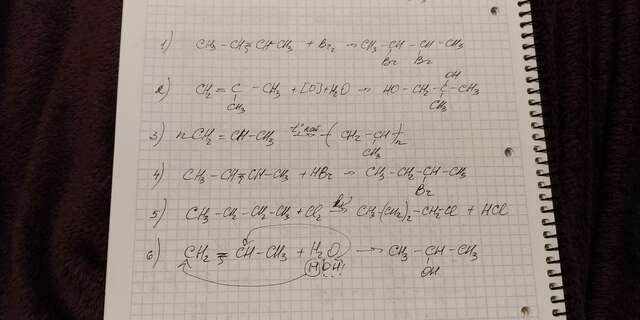 1) CH₃ – CH = CH – CH₃ + Br₂ → CH₃ – CH – CH – CH₃
Br Br
2) CH₂ = C – CH₃ + [O] + H₂O → HO – CH₂ – C – CH₃
CH₃ OH CH₃
3) n CH₂ = CH – CH₃ → (– CH₂ – CH –)n
CH₃
4) CH₃ – CH = CH – CH₃ + HBr → CH₃ – CH₂ – CH – CH₃
Br
5) CH₃ – CH₂ – CH₂ – CH₃ + Cl₂ → CH₃ – (CH₂)₂ – CH₂Cl + HCl
6) CH₂ = CH – CH₃ + H₂O → CH₃ – CH – CH₃
H OH OH